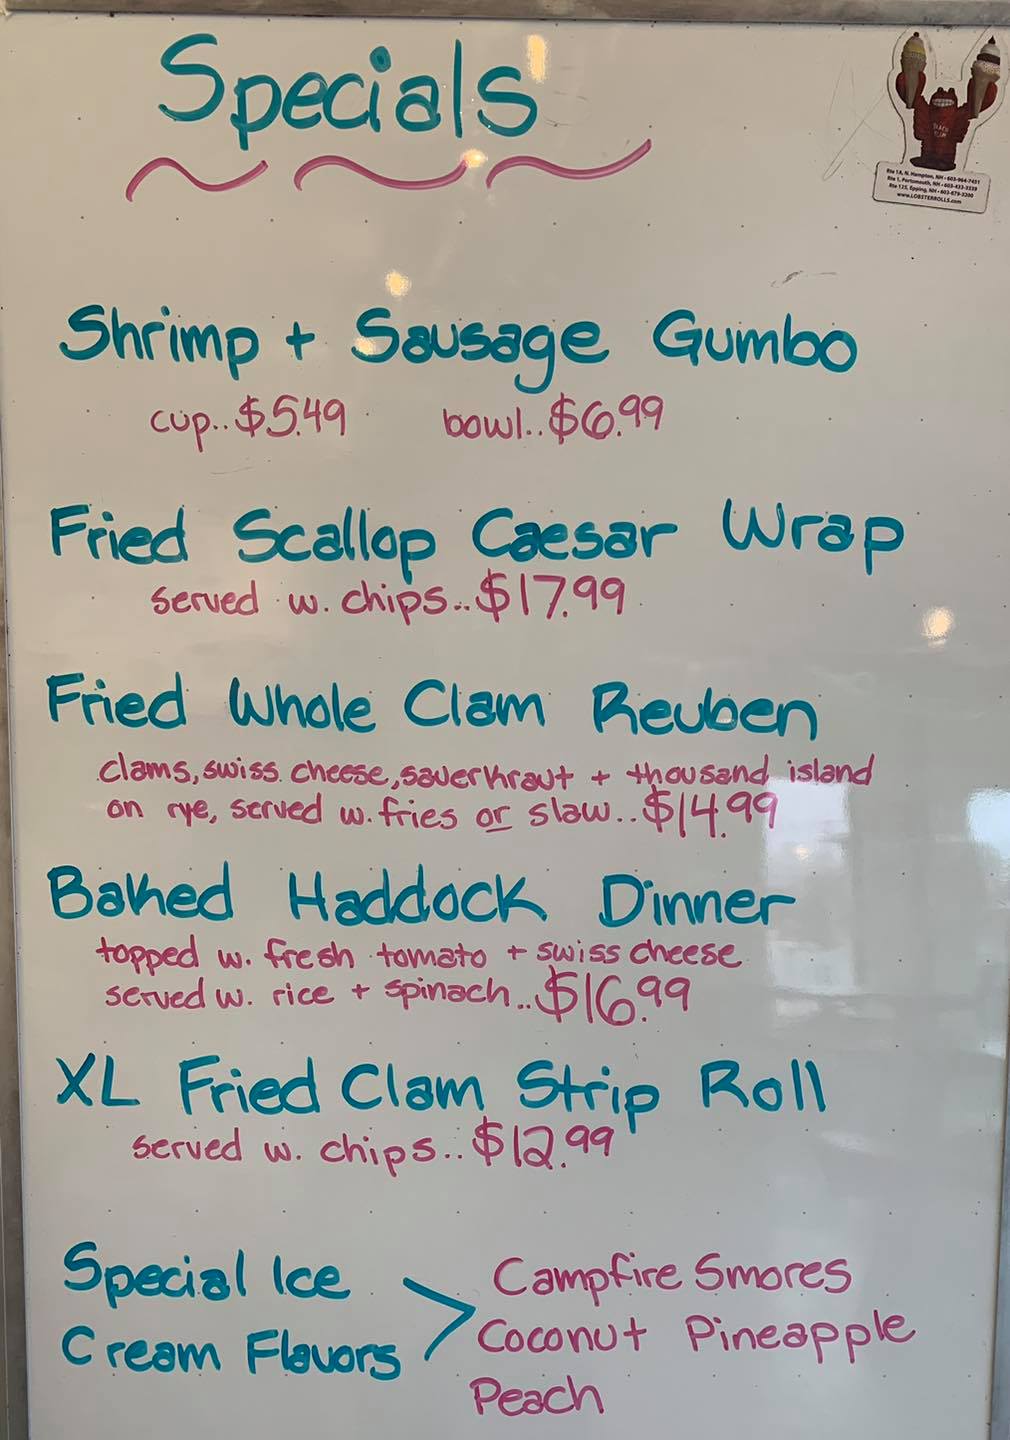 Specials
BEACH
PLUM
Rte 1A, N. Hampton, NH • 603-964-7451
Rte 1, Portsmouth, NH • 603-433-3339
Rte 125, Epping, NH • 603-679-3200
www.LOBSTERROLLS.com
Shrimp + Sausage Gumbo
cup..$5.49 bowl..$6.99
Fried Scallop Caesar Wrap
served w. chips..$17.99
Fried Whole Clam Reuben
clams, swiss cheese, sauerkraut + thousand island
on rye, served w. fries or slaw..$14.99
Baked Haddock Dinner
topped w. fresh tomato + swiss cheese
served w. rice + spinach..$16.99
XL Fried Clam Strip Roll
served w. chips..$12.99
Special Ice
Cream Flavors > Campfire Smores
Coconut Pineapple
Peach